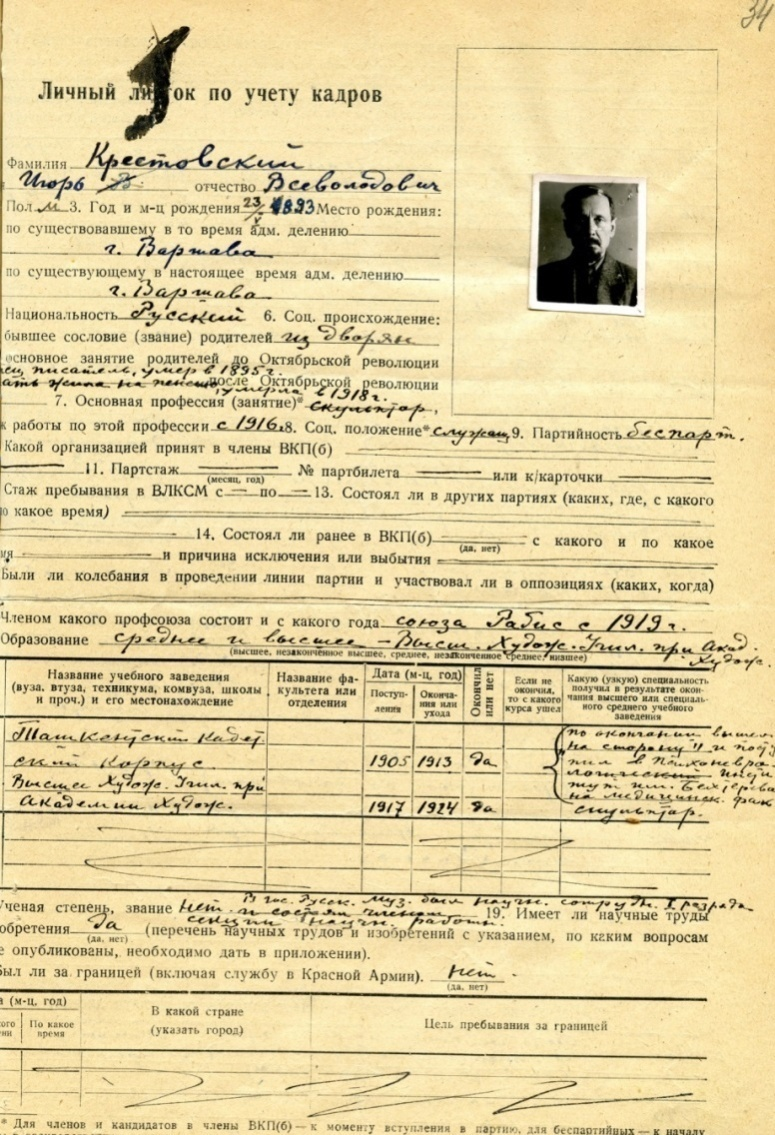 34
Личный листок по учету кадров
Фамилия Крестовский
Игорь В. отчество Всеволодович
Пол м 3. Год и м-ц рождения 23/V 1893 Место рождения:
по существовавшему в то время адм. делению
г. Варшава
по существующему в настоящее время адм. делению
г. Варшава
Национальность Русский 6. Соц. происхождение:
бывшее сословие (звание) родителей из дворян
основное занятие родителей до Октябрьской революции
писатель, умер в 1895 г.
жила на пенсию, после Октябрьской революции
умерла в 1918 г.
7. Основная профессия (занятие)* скульптор,
работы по этой профессии с 1916. 8. Соц. положение* служащ 9. Партийность беспарт.
Какой организацией принят в члены ВКП(б)
11. Партстаж № партбилета или к/карточки
(месяц, год)
Стаж пребывания в ВЛКСМ с — по — 13. Состоял ли в других партиях (каких, где, с какого
какое время)
14. Состоял ли ранее в ВКП(б) с какого и по какое
(да, нет)
и причина исключения или выбытия
Были ли колебания в проведении линии партии и участвовал ли в оппозициях (каких, когда)
Членом какого профсоюза состоит и с какого года союза Рабис с 1919 г.
Образование среднее и высшее – Высш. Худож. Учил. при Акад.
Худож.
(высшее, незаконченное высшее, среднее, незаконченное среднее, низшее)
Название учебного заведения
(вуза, втуза, техникума, комвуза, школы
и проч.) и его местонахождение
Название фа-
культета или
отделения
Дата (м-ц, год)
Поступ-
ления
Оконча-
ния или
ухода
Окончил
или нет
Если не
окончил,
то с какого
курса ушел
Какую (узкую) специальность
получил в результате окон-
чания высшего или специаль-
ного среднего учебного
заведения
Ташкентский Кадет
ский Корпус 1905 1913 да
по окончании вышел
на сторону и посту
пил в Психоневро
логический инсти
тут им. Бехтерева
на медицинск. фак
Высшее Худож. Учил. при
Академии Худож. 1917 1924 да скульптор.
В гос. Русск. Муз. был научн. сотрудн. I разряда
Ученая степень, звание нет и состоял членом 19. Имеет ли научные труды
секции научн. работн.
изобретения да (перечень научных трудов и изобретений с указанием, по каким вопросам
(да, нет)
опубликованы, необходимо дать в приложении).
Был ли за границей (включая службу в Красной Армии). нет.
(да, нет)
(м-ц, год)
По какое
время
В какой стране
(указать город)
Цель пребывания за границей
* Для членов и кандидатов в члены ВКП(б) — к моменту вступления в партию, для беспартийных — к началу